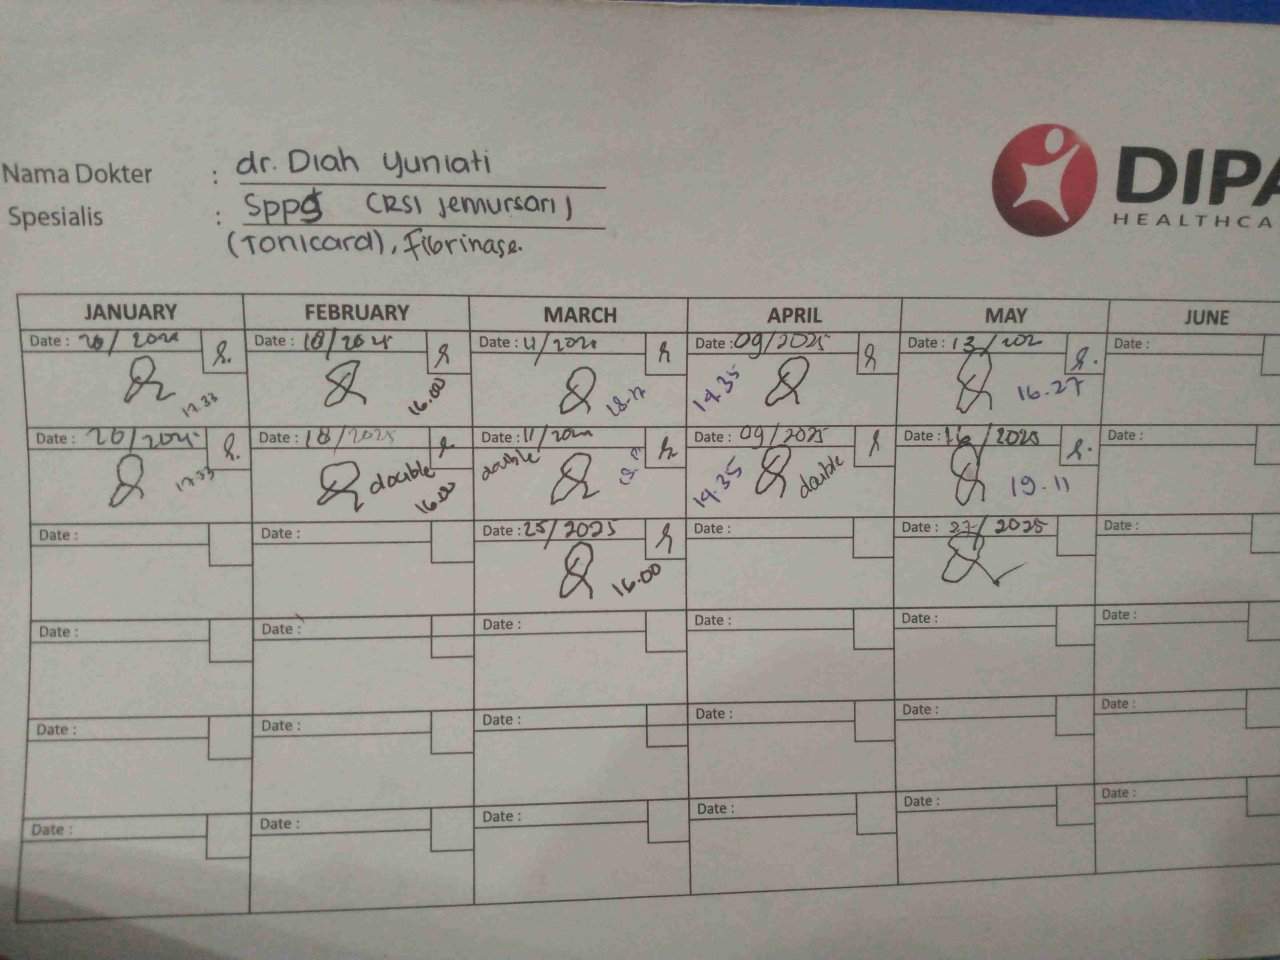 Nama Dokter : dr. Diah Yuniati
DIPA
HEALTHCA
Spesialis : Sppg (RSI Jemursari)
(Tonicard), Fibrinase.
JANUARY FEBRUARY MARCH APRIL MAY JUNE
Date : 20/ Date : 18/ Date : 11/ Date : 09/2025 Date : 13/202 Date :
17.33 16.00 18.17 14.35 16.27
Date : 20/ Date : 18/2025 Date : 11/ Date : 09/2025 Date : 16/2025 Date :
17.33 double 16.00 double 14.35 double 19.11
Date : Date : Date : 25/2025 Date : Date : 27/2025 Date :
16.00
Date : Date : Date : Date : Date : Date :
Date : Date : Date : Date : Date : Date :
Date : Date : Date : Date : Date : Date :